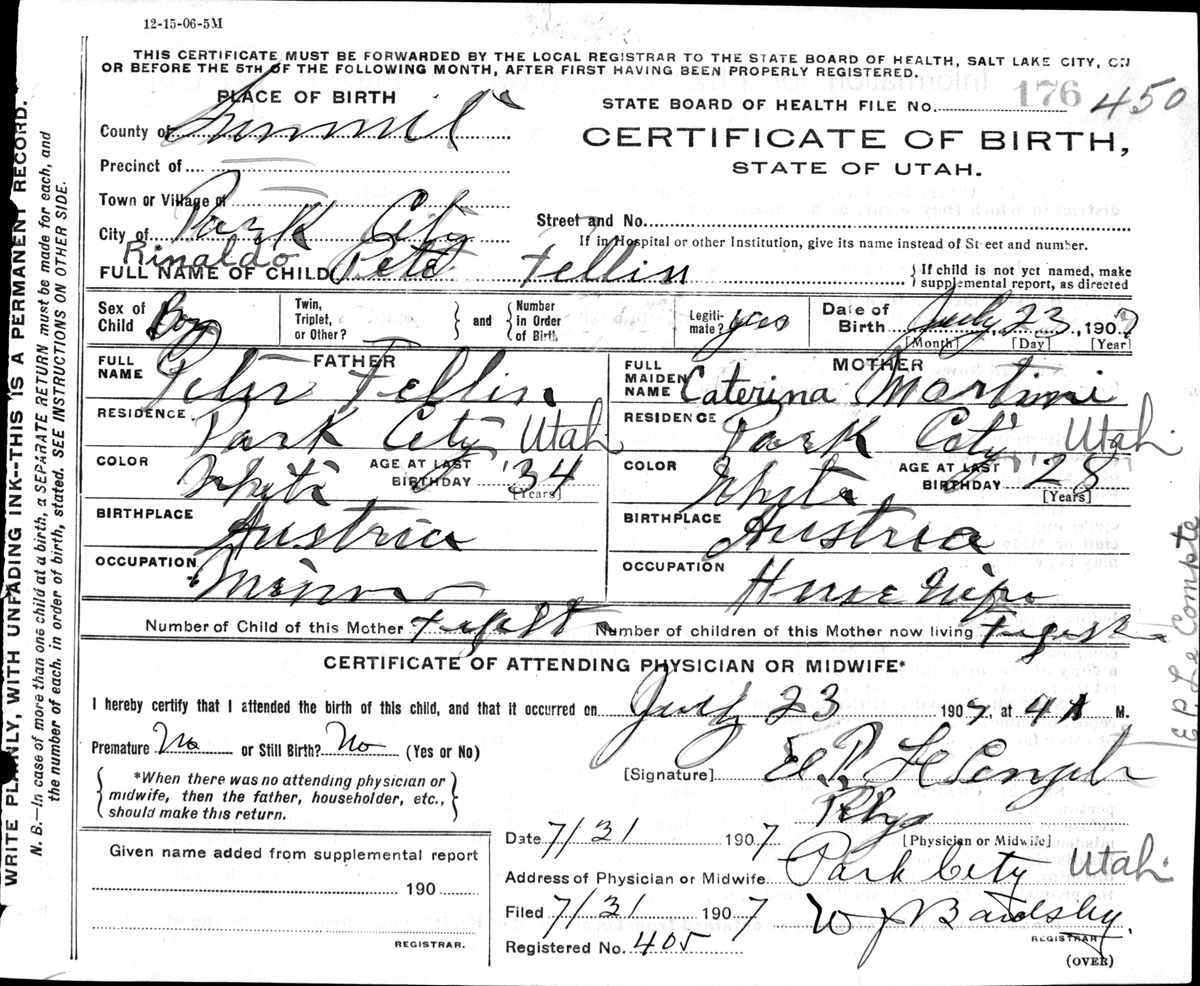 12-15-06-5M
THIS CERTIFICATE MUST BE FORWARDED BY THE LOCAL REGISTRAR TO THE STATE BOARD OF HEALTH, SALT LAKE CITY, ON
OR BEFORE THE 5TH OF THE FOLLOWING MONTH, AFTER FIRST HAVING BEEN PROPERLY REGISTERED.
WRITE PLAINLY, WITH UNFADING INK--THIS IS A PERMANENT RECORD.
N. B.—In case of more than one child at a birth, a SEPARATE RETURN must be made for each, and
the number of each, in order of birth, stated. SEE INSTRUCTIONS ON OTHER SIDE.
PLACE OF BIRTH
County of Summit
Precinct of
Town or Village of
City of Park City
STATE BOARD OF HEALTH FILE NO. 176 450
CERTIFICATE OF BIRTH,
STATE OF UTAH.
Street and No.
If in Hospital or other Institution, give its name instead of Street and number.
Rinaldo
FULL NAME OF CHILD Pete Fellin
If child is not yet named, make
supplemental report, as directed
Sex of Child Boy
Twin, Triplet, or Other? and Number In Order of Birth
Legiti-mate? yes
Date of Birth July 23, 1907
[Month] [Day] [Year]
FATHER
FULL NAME Peter Fellin
RESIDENCE Park City Utah
COLOR White AGE AT LAST BIRTHDAY 34
[Years]
BIRTHPLACE Austria
OCCUPATION Miner
MOTHER
FULL MAIDEN NAME Caterina Martini
RESIDENCE Park City Utah
COLOR White AGE AT LAST BIRTHDAY 28
[Years]
BIRTHPLACE Austria
OCCUPATION House Wife
Number of Child of this Mother
Number of children of this Mother now living
CERTIFICATE OF ATTENDING PHYSICIAN OR MIDWIFE*
I hereby certify that I attended the birth of this child, and that it occurred on July 23 1907, at 4 A M.
Premature No or Still Birth? No (Yes or No)
*When there was no attending physician or
midwife, then the father, householder, etc.,
should make this return.
[Signature] E. P. Le Compte
Phys
[Physician or Midwife]
Date 7/31 1907
Address of Physician or Midwife Park City Utah.
Filed 7/31 1907 W J Bardsley.
REGISTRAR
Registered No. 405
(OVER)
Given name added from supplemental report
190
REGISTRAR.
E P. Le Compte